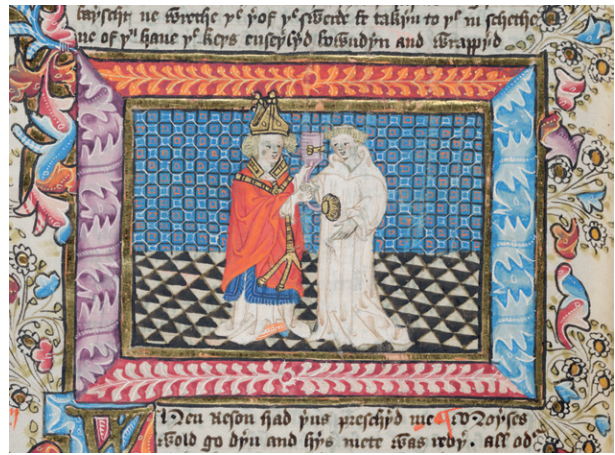 ne wrethe yᵉ yof yᵉ swerde & takyn to yᵉ in schethe
ne of yᵗ hane yᵉ keys enselyd bowndyn and wrappyd
hen Reson had yus prechyd Moyses
wold go dyn and hys mete was redy. all od